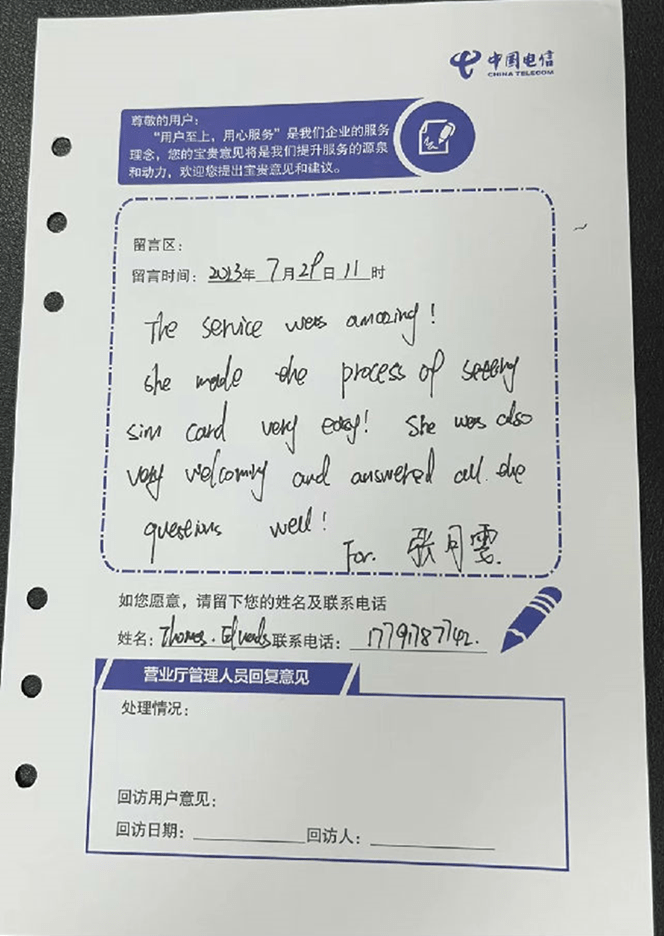 中国电信
CHINA TELECOM
尊敬的用户：
“用户至上，用心服务”是我们企业的服务
理念，您的宝贵意见将是我们提升服务的源泉
和动力，欢迎您提出宝贵意见和建议。
留言区：
留言时间：2023年7月29日11时
The service was amazing!
She made the process of setting
sim card very easy! She was also
very welcoming and answered all the
questions well!
For. 张月雯
如您愿意，请留下您的姓名及联系电话
姓名：Thomas. Edwards联系电话：17791787742.
营业厅管理人员回复意见
处理情况：
回访用户意见：
回访日期：
回访人：